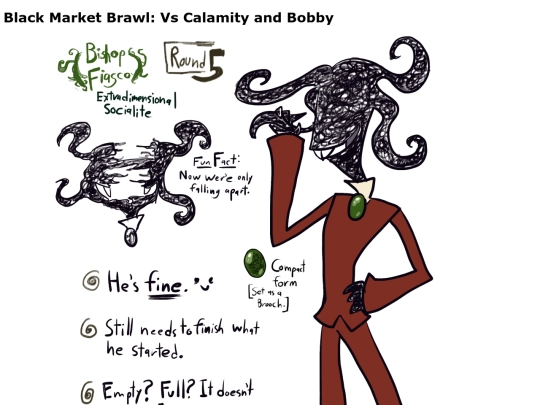 Black Market Brawl: Vs Calamity and Bobby
Bishop
Fiasco
Round 5
Extradimensional
Socialite
Fun Fact:
Now were only
falling apart.
Compact
form
[Set as a
Brooch.]
He's fine. "ᴗ"
Still needs to finish what
he started.
Empty? Full? It doesn't